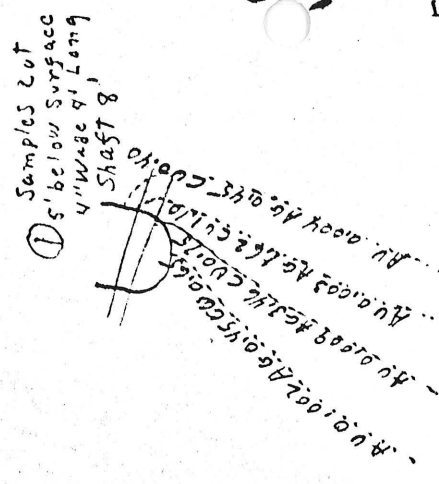 ① Samples Cut
5' below Surface
4" Wide 4' Long
Shaft 8'
AU. 0.004 AG. 0.45 CU 0.40
AU 0.003 AG. 1.62 CU 1.10
AU 0.009 AG 3.46 CU 0.75
AU 0.002 AG 0.45 CU 0.65